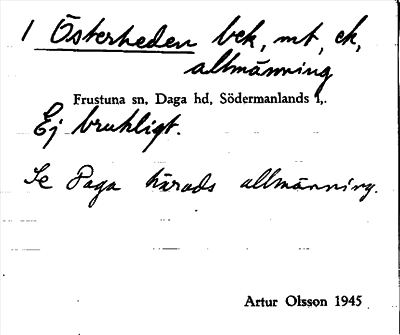 1 Österheden bek, mt, ek,
allmänning
Frustuna sn, Daga hd, Södermanlands l,.
Ej brukligt.
Se Daga härads allmänning.
Artur Olsson 1945